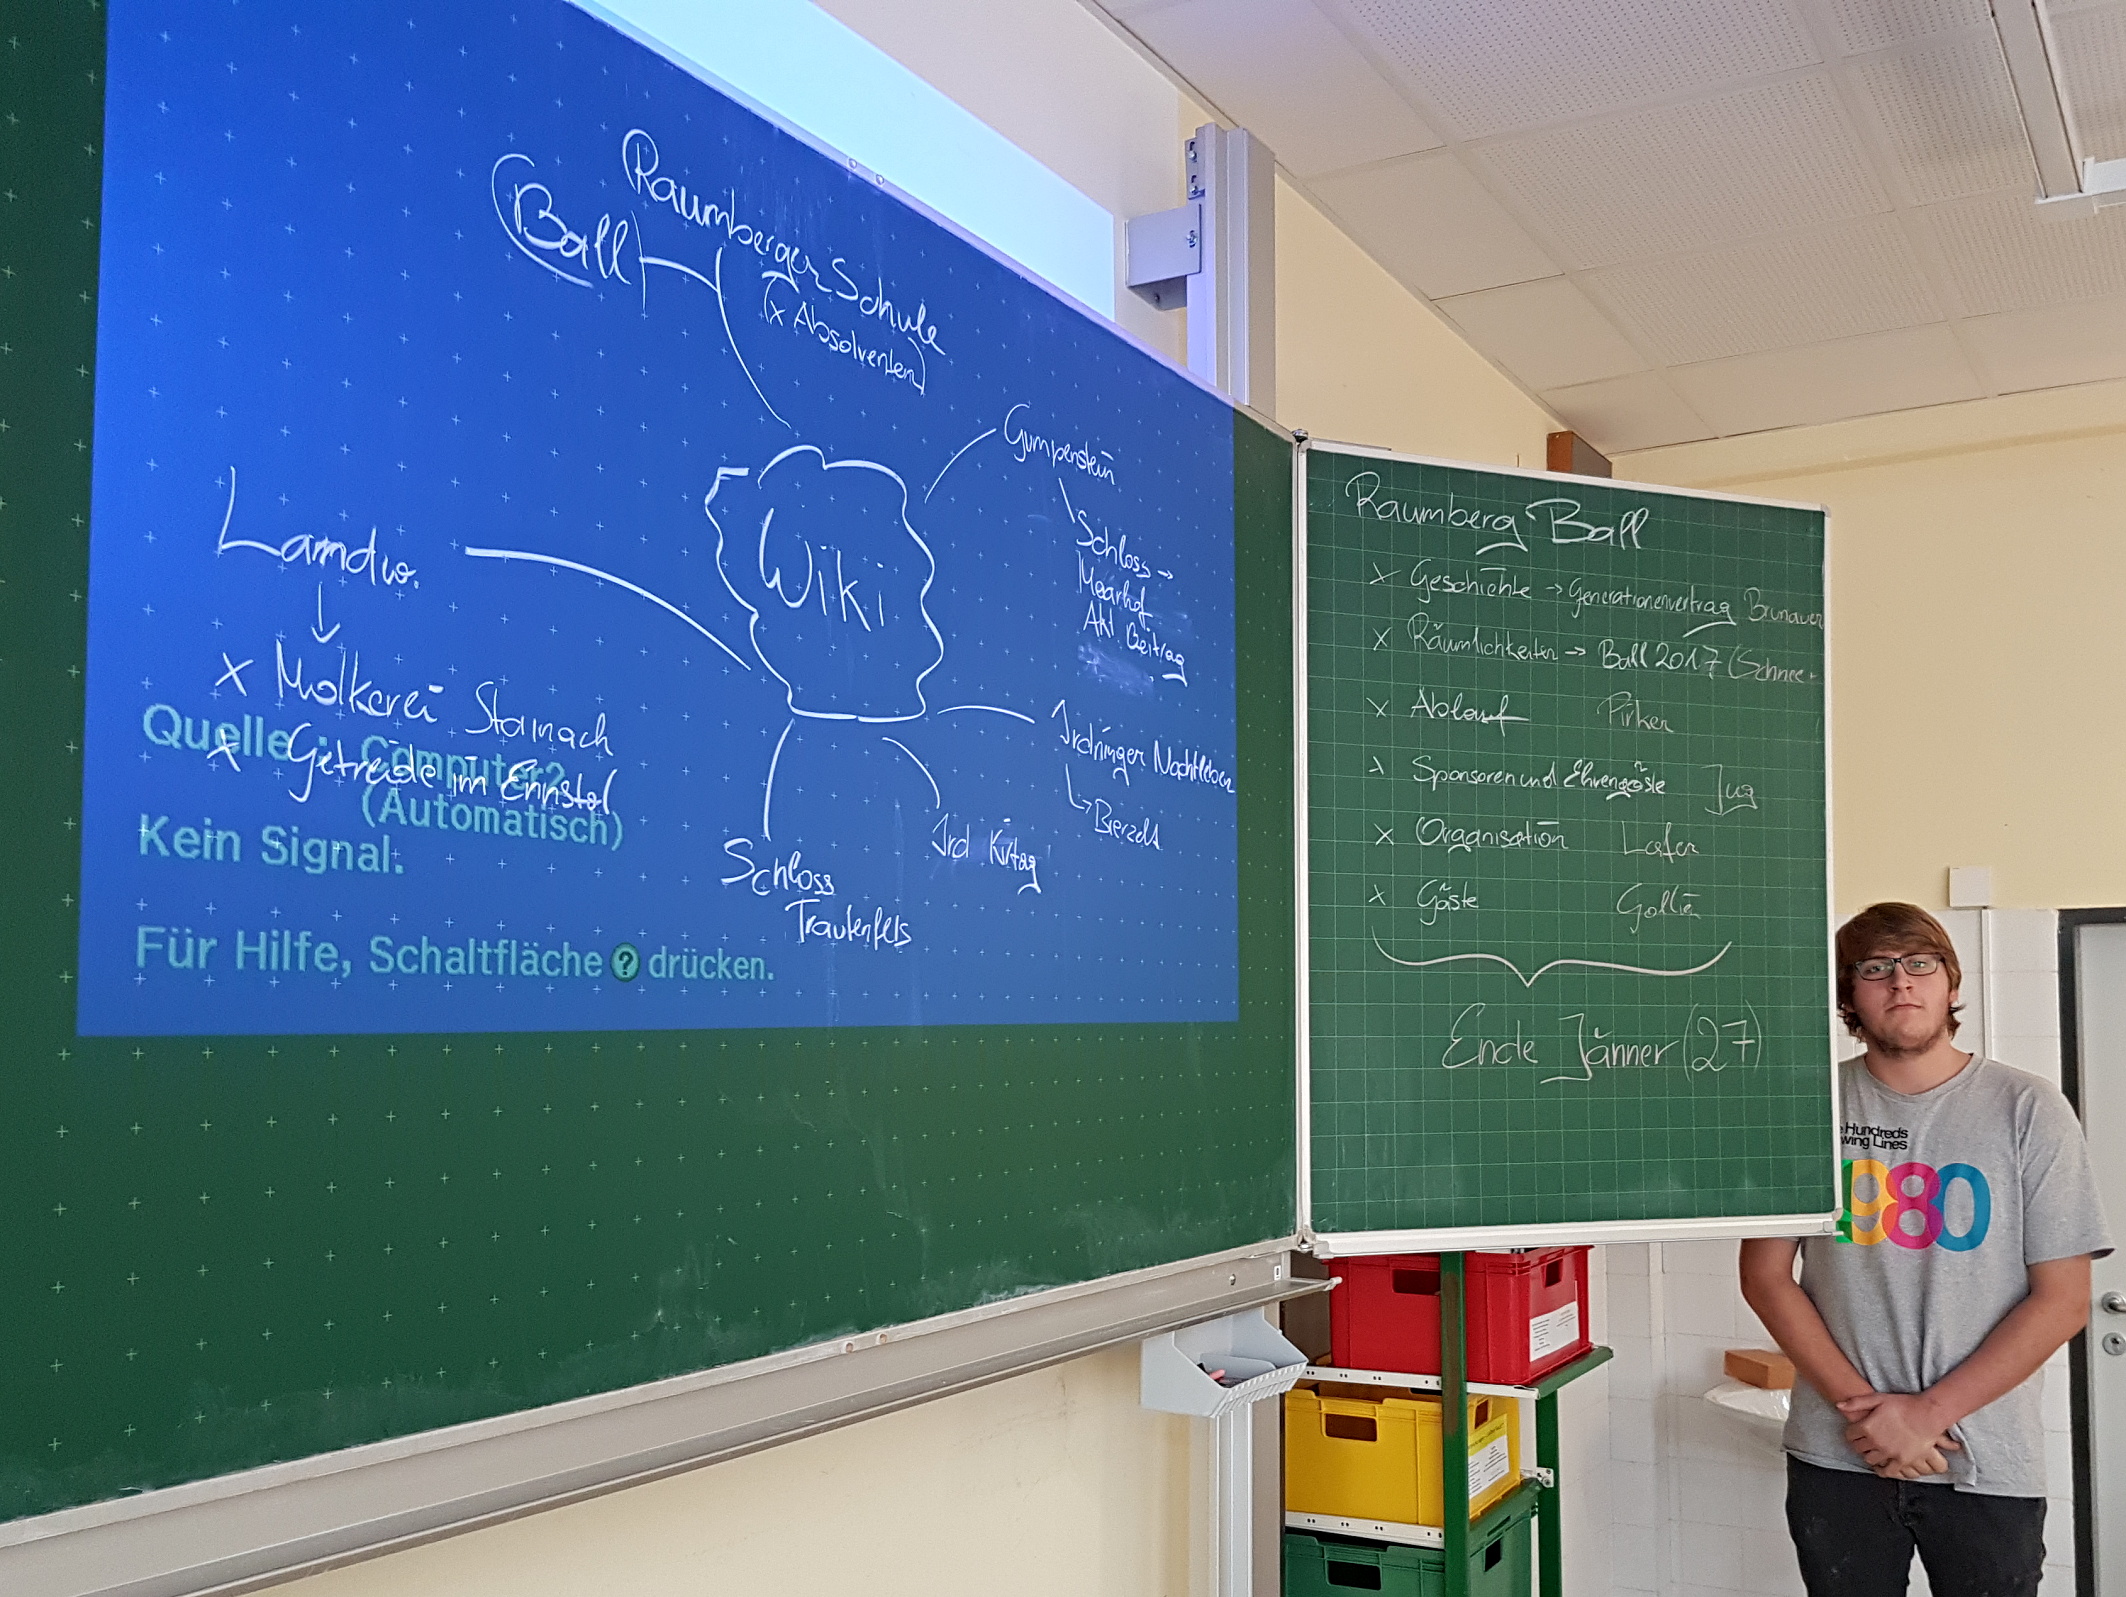 Ball
Raumberger Schule
(x Absolventen)
Gumpenstein
Schloss →
Moarhof
Akt. Beitrag
Wiki
Landw.
x Molkerei Stainach
x Getreide im Ennstal
Irdninger Nachtleben
Bierzelt
Ird. Kirtag
Schloss
Trautenfels
Quelle : Computer2
(Automatisch)
Kein Signal.
Für Hilfe, Schaltfläche ? drücken.
Raumberg Ball
x Geschichte → Generationenvertrag Brunauer
x Räumlichkeiten → Ball 2017 (Schnee
x Ablauf Pirker
x Sponsoren und Ehrengäste Jug
x Organisation Lafer
x Gäste
Ende Jänner (27)
Hundreds
wing Lines
1980